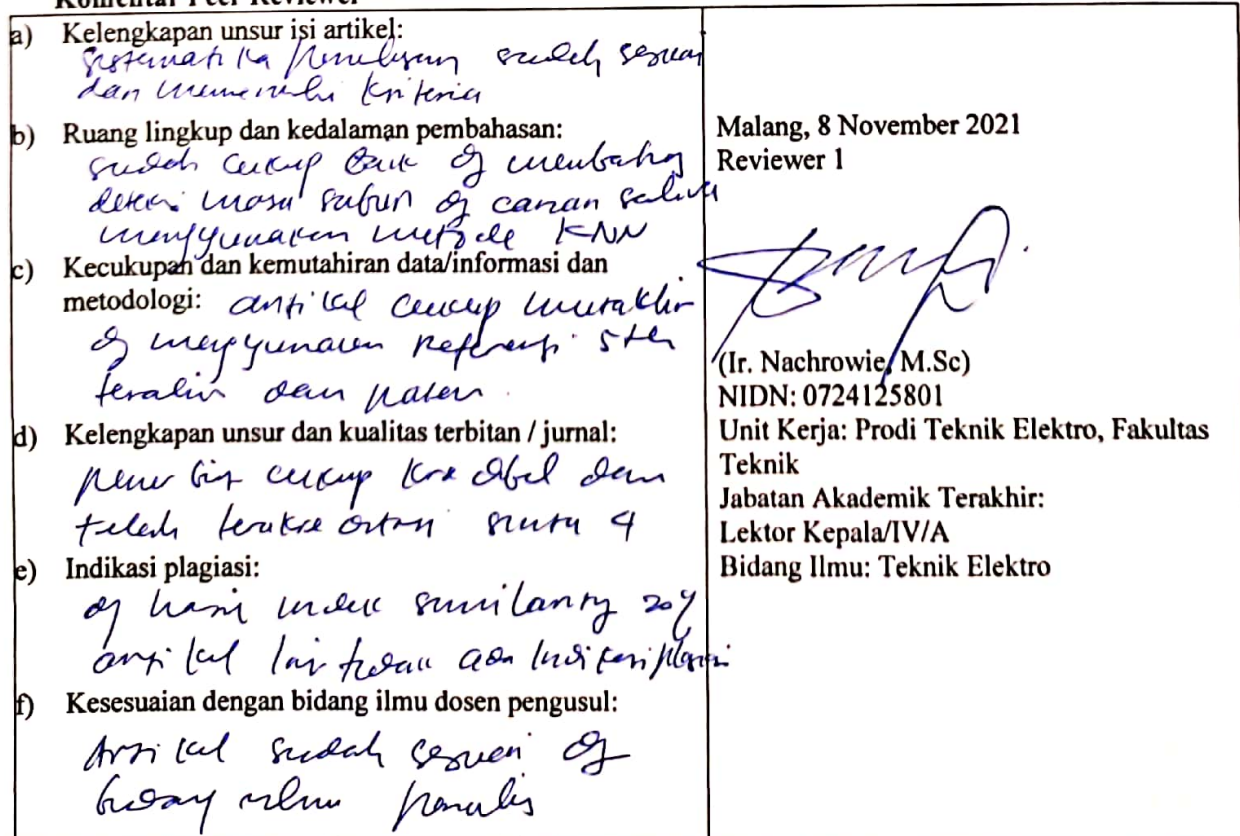 Komentar Peer Reviewer
a) Kelengkapan unsur isi artikel:
sistematika penulisan sudah sesuai
dan memenuhi kriteria
b) Ruang lingkup dan kedalaman pembahasan:
sudah cukup baik dg membahas
deteksi masa subur dg cairan saliva
menggunakan metode KNN
c) Kecukupan dan kemutahiran data/informasi dan
metodologi: artikel cukup mutakhir
dg menggunakan referensi 5 th
terakhir dan
d) Kelengkapan unsur dan kualitas terbitan / jurnal:
penerbit cukup kredibel dan
telah terakreditasi sinta 4
e) Indikasi plagiasi:
dg hasil indek similarity 20%
artikel tidak ada indikasi plagiasi
f) Kesesuaian dengan bidang ilmu dosen pengusul:
Artikel sudah sesuai dg
bidang ilmu penulis
Malang, 8 November 2021
Reviewer 1
(Ir. Nachrowie, M.Sc)
NIDN: 0724125801
Unit Kerja: Prodi Teknik Elektro, Fakultas
Teknik
Jabatan Akademik Terakhir:
Lektor Kepala/IV/A
Bidang Ilmu: Teknik Elektro